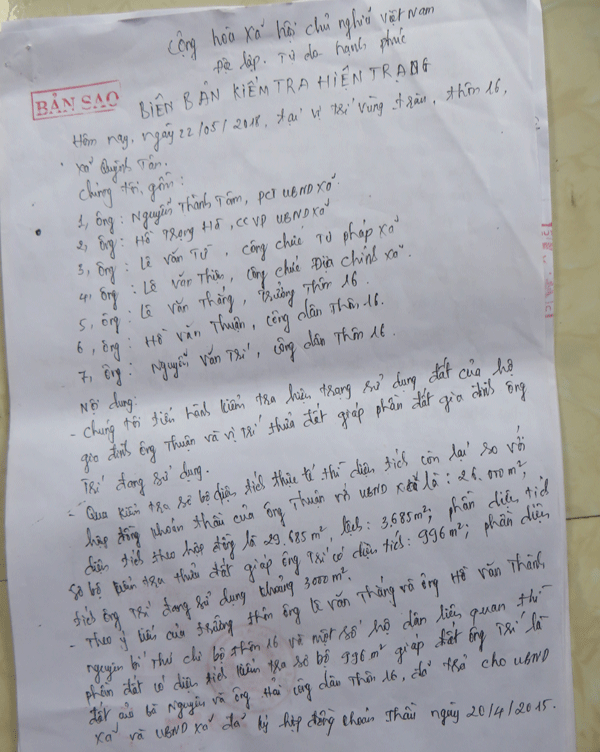 Cộng hòa xã hội chủ nghĩa Việt Nam
Độc lập. Tự do hạnh phúc
BẢN SAO
BIÊN BẢN KIỂM TRA HIỆN TRẠNG
Hôm nay, ngày 22/05/2018, tại vị trí vùng tràu, thôn 16,
xã Quỳnh Tân.
Chúng tôi, gồm:
1, ông: Nguyễn Thành Tâm, PCT UBND xã.
2, ông: Hồ Trọng Hồ, CCVP UBND xã
3, ông: Lê Văn Tứ, công chức Tư pháp xã
4, ông: Lê Văn Thiên, công chức Địa chính xã.
5, ông: Lê Văn Thắng, trưởng Thôn 16.
6, ông: Hồ Văn Thuận, công dân Thôn 16.
7, ông: Nguyễn Văn Trí, công dân Thôn 16.
Nội dung:
- Chúng tôi tiến hành kiểm tra hiện trạng sử dụng đất của hộ
gia đình ông Thuận và vị trí thửa đất giáp phần đất gia đình ông
Trí đang sử dụng.
- Qua kiểm tra sơ bộ diện tích thực tế thì diện tích còn lại so với
hợp đồng khoán thầu của ông Thuận với UBND xã là: 26.000m²,
diện tích theo hợp đồng là 29.685m², lệch: 3.685m²; phần diện tích
sơ bộ kiểm tra thửa đất giáp ông Trí có diện tích: 996m²; phần diện
tích ông Trí đang sử dụng khoảng 3000m².
- Theo ý kiến của trưởng thôn ông Lê Văn Thắng và ông Hồ Văn Thành
nguyên bí thư chi bộ thôn 16 và một số hộ dân liên quan thì
phần đất có diện tích kiểm tra sơ bộ 996m² giáp đất ông Trí là
đất của bà Nguyên và ông Hải công dân Thôn 16, đã trả cho UBND
xã và UBND xã đã ký hợp đồng khoán Thầu ngày 20/4/2015.